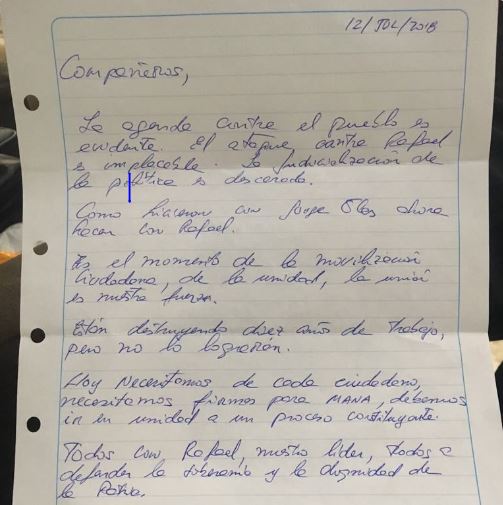 12/JUL/2018
Compañeros,
La agenda contra el pueblo es
evidente. El ataque contra Rafael
es implacable. La judicialización de
la política es descarada.
Como hicieron con Jorge Glas ahora
hacen con Rafael.
Es el momento de la movilización
ciudadana, de la unidad, la unión
es nuestra fuerza.
Están destruyendo diez años de trabajo,
pero no lo lograrán.
Hoy Necesitamos de cada ciudadano,
necesitamos firmas para MANA, debemos
ir en unidad a un proceso constituyente.
Todos con Rafael, nuestro líder, todos a
defender la soberanía y la dignidad de
la Patria.